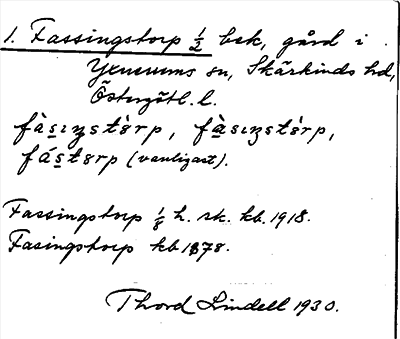 1. Fassingstorp ½ bck, gård i
Yxnerums sn, Skärkinds hd,
Östergötl. l.
fàsıŋstórp, fàsıŋstórp,
fástorp (vanligast).
Fassingstorp ⅛ h. sk. kb. 1918.
Fasingstorp kb 1878.
Thord Lindell 1930.